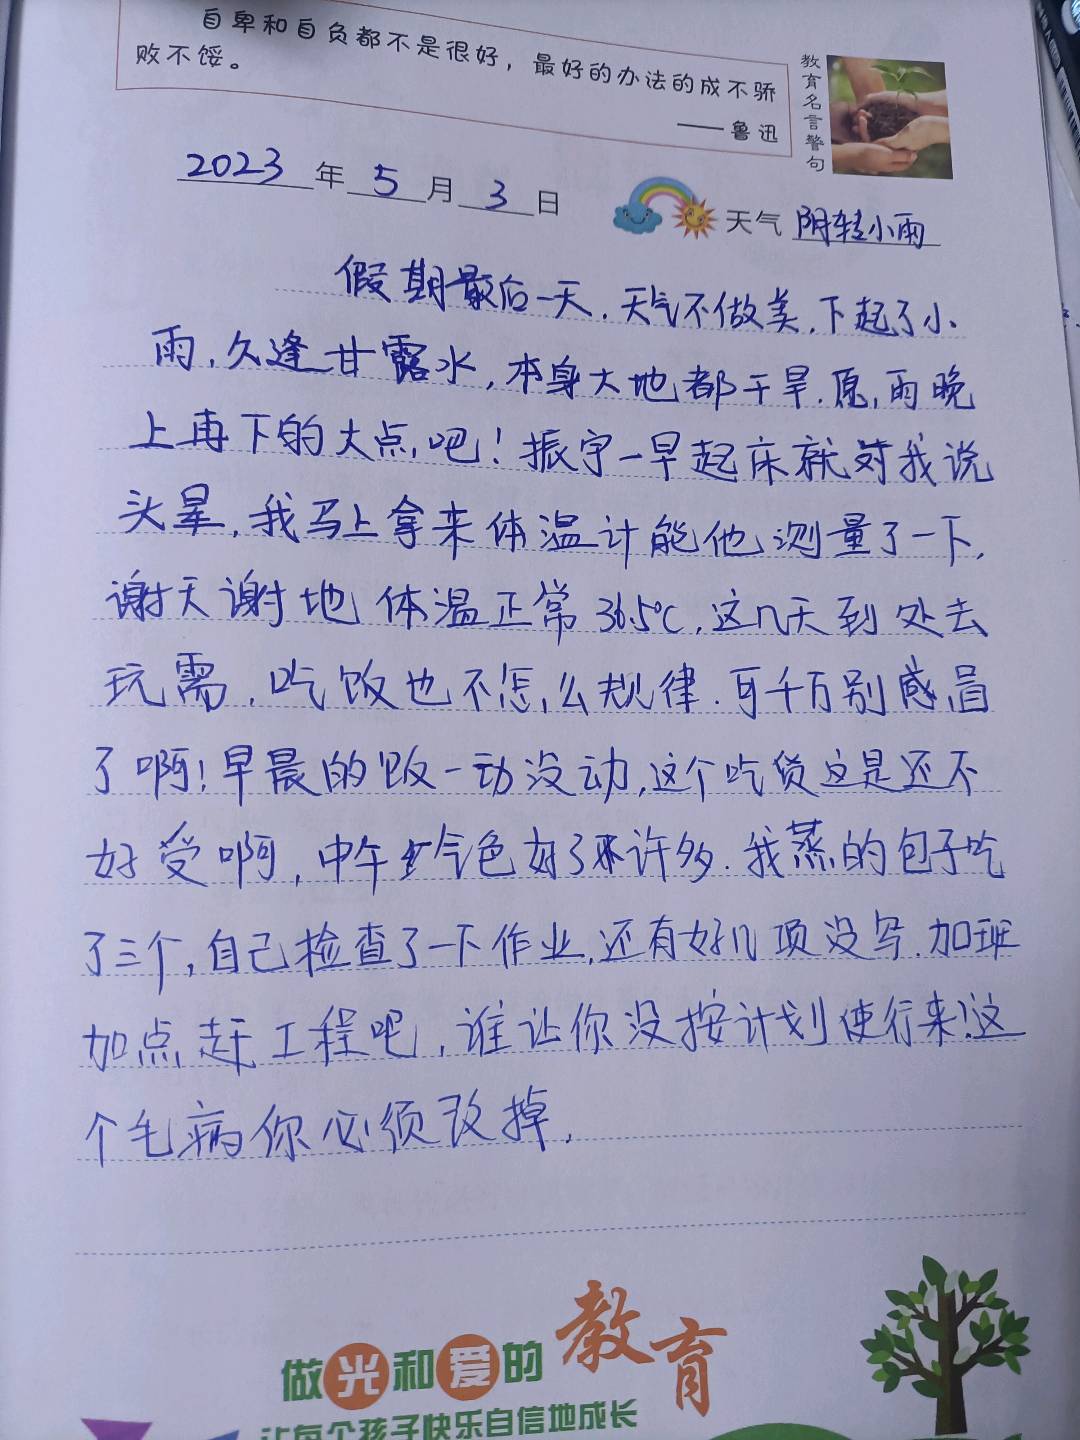 自卑和自负都不是很好，最好的办法的成不骄
败不馁。
——鲁迅
教育名言警句
2023年5月3日
天气 阴转小雨
假期最后一天，天气不做美，下起了小
雨，久逢甘露水，本身大地都干旱，愿雨晚
上再下的大点吧！振宇一早起床就对我说
头晕，我马上拿来体温计能他测量了一下，
谢天谢地体温正常36.5℃，这几天到处去
玩需，吃饭也不怎么规律．可千万别感冒
了啊！早晨的饭一动没动，这个吃货这是还不
好受啊，中午气色好了许多．我蒸的包子吃
了三个，自己检查了一下作业，还有好几项没写．加班
加点赶工程吧，谁让你没按计划使行来！这
个毛病你必须改掉．
做光和爱的教育
让每个孩子快乐自信地成长